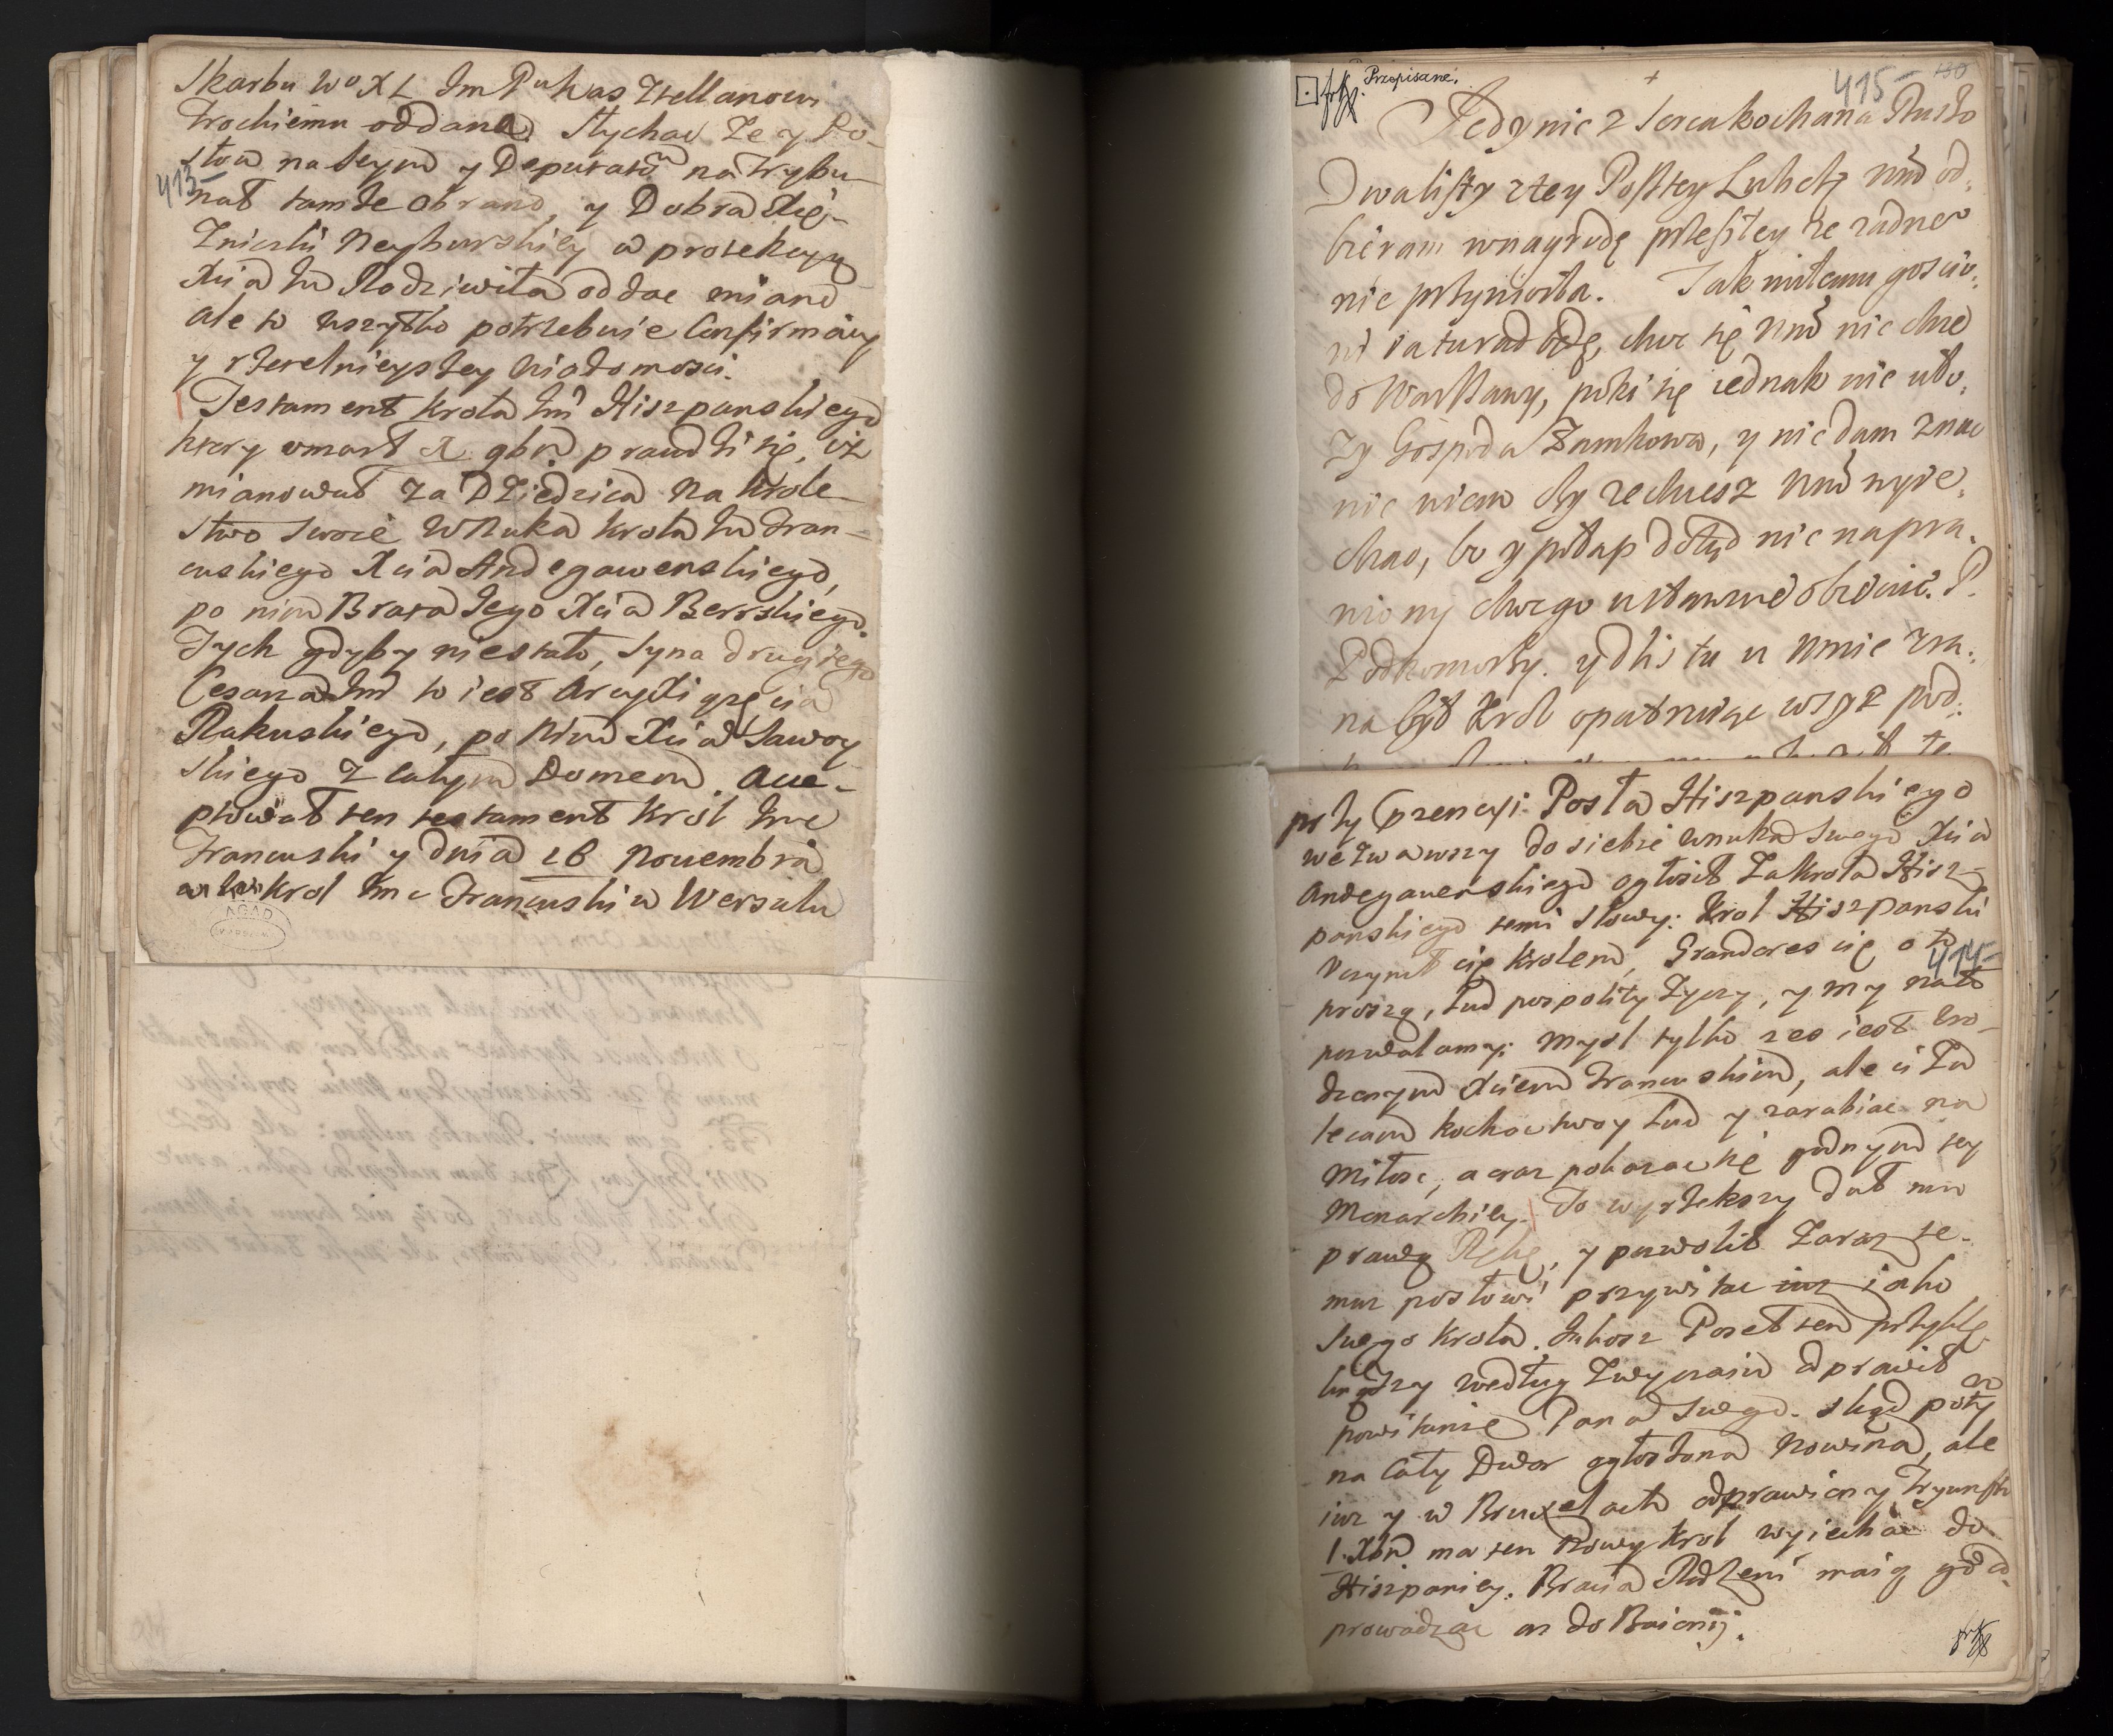 Skarbu Wo XL Im Pu Kasztellanowi
Trockiemu oddana Słychac ze y Po-
słow na Seym y Deputatow na Trybu-
413
nał tamze obrano, y Dobra Xię-
zniczki Neyburskiey w protekcyą
Xiu Radziwiła oddac miano
ale to wszytko potrzebuie Confirmacyi
y rzetelnieyszey wiadomosci.
Testament Krola Im Hiszpanskiego
ktory umarł 1 9bra prawdzi się, iz
mianował za Dziedzica na Krole-
stwo swoie Wnuka Krola Im Fran-
cuskiego Xcia Andegawenskiego,
po nim Brata Jego Xcia Berrskiego.
Tych gdyby niestało, Syna drugiego
Cesarza Im to iest Arcyxiązęcia
Rakuskiego, po nim Xcia Sawoy
skiego z całym Domem. Acce-
ptował ten testament Krol Imc
Francuski y dnia 16 Novembra
Krol Imc Francuski w Wersalu
AGAD
Przopisane.
415
130
Jedynie z serca kochana Duszo
Dwa listy z tey Poszty Lubelskiej od-
bieram w nagrodę przeszłey ze zadnego
nie przyniosła. Tak miłemu goscio-
wi rad będę, chce się nie chce
do Warszawy, poki się iednak nie uło-
zy Gospoda Zamkowa, y nie dam znac
nie wiem czy zechcesz wyie-
chac, bo y pułap dotąd nie napra-
wiony chocgo ustawnie obiecuie P.
Podkomorzy. y dzis tu u mnie z ra-
na był Krol opatruiąc wszęd pod-
przy prezencyi Posła Hiszpanskiego
wezwawszy do siebie wnuka swego Xcia
Andegawenskiego ogłosił za Krola Hisz-
panskiego temi słowy: Krol Hiszpanski
Uczynił cię Krolem, Grandowie cię o to
414
proszą, Lud pospolity zyczy, y my na to
pozwalamy: mysl tylko zes iest uro-
dzonym Xciem Francuskim, ale ci za
lecam kochac twoy Lud y zarabiac na
miłosc, a oraz pokazac się godnym tey
Monarchiey. To wyrzekszy dał mu
prawą Rękę, y pozwolił zaraz te-
muz posłowi przywitac iuz iako
swego Krola. Jakosz Poseł ten przyklę
knąwszy według zwyczaiu odprawił
powitanie Pana swego. skąd potym
na cały Dwor ogłoszona nowina, ale
iuz y w Bruxelach odprawiony Tryumph
1. Xbra ma ten nowy Krol wyiechac do
Hiszpaniey. Bracia Rodzeni maią go od-
prowadzac az do Baionij.